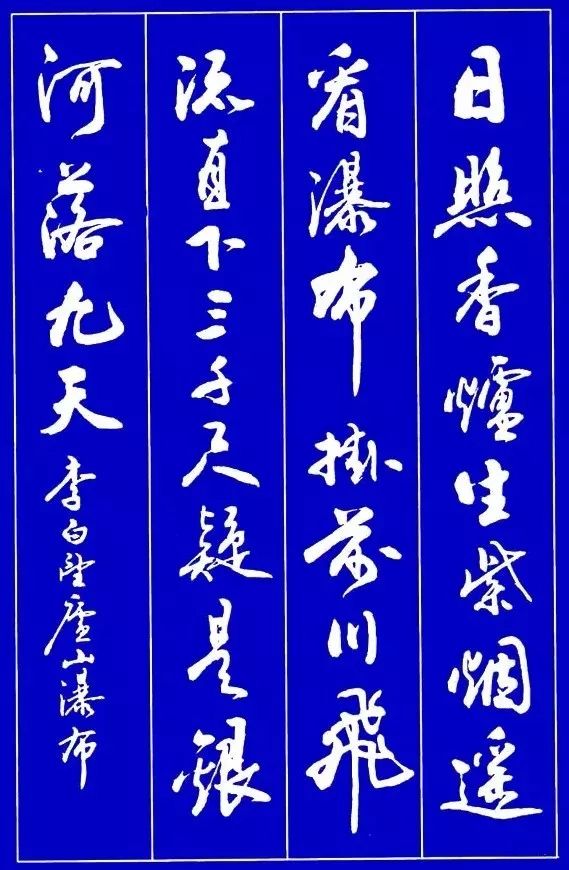 日照香爐生紫烟遥
看瀑布掛前川飛
流直下三千尺疑是銀
河落九天
李白望廬山瀑布